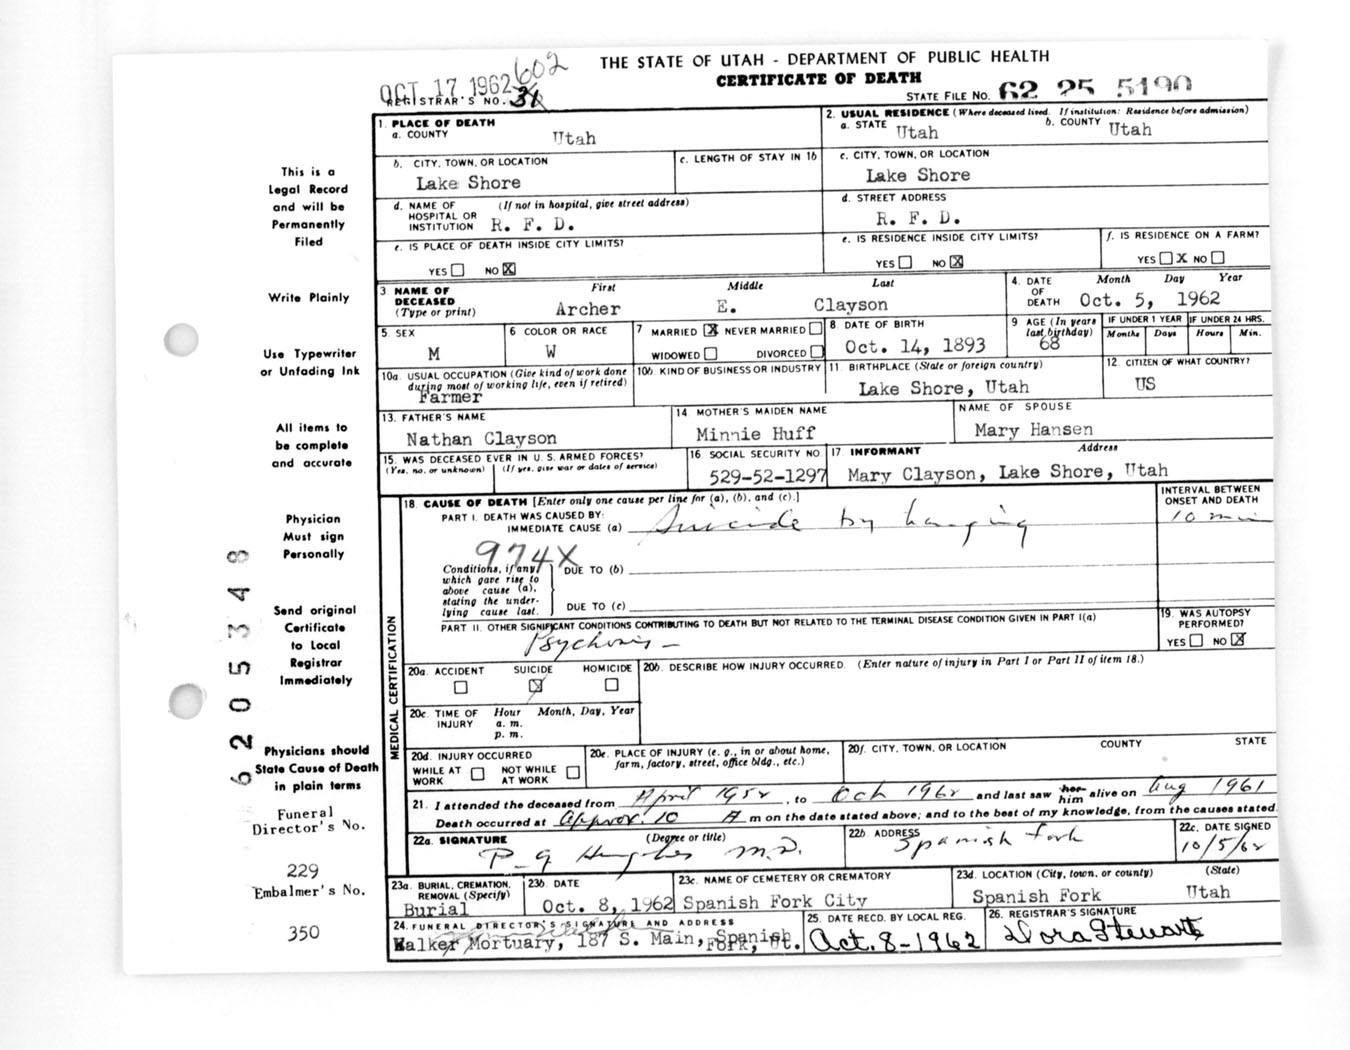 THE STATE OF UTAH - DEPARTMENT OF PUBLIC HEALTH
CERTIFICATE OF DEATH
OCT 17 1962 602
REGISTRAR'S NO.
STATE FILE NO. 62 25 5190
This is a
Legal Record
and will be
Permanently
Filed
Write Plainly
Use Typewriter
or Unfading Ink
All items to
be complete
and accurate
Physician
Must sign
Personally
Send original
Certificate
to Local
Registrar
Immediately
Physicians should
State Cause of Death
in plain terms
Funeral
Director's No.
229
Embalmer's No.
350
6205348
1. PLACE OF DEATH
a. COUNTY Utah
2. USUAL RESIDENCE (Where deceased lived. If institution: Residence before admission)
a. STATE Utah b. COUNTY Utah
b. CITY, TOWN, OR LOCATION
Lake Shore
c. LENGTH OF STAY IN 1b
c. CITY, TOWN, OR LOCATION
Lake Shore
d. NAME OF (If not in hospital, give street address)
HOSPITAL OR
INSTITUTION R. F. D.
d. STREET ADDRESS
R. F. D.
e. IS PLACE OF DEATH INSIDE CITY LIMITS?
YES NO X
e. IS RESIDENCE INSIDE CITY LIMITS?
YES NO X
f. IS RESIDENCE ON A FARM?
YES X NO
3. NAME OF
DECEASED
(Type or print)
First Middle Last
Archer E. Clayson
4. DATE
OF
DEATH
Month Day Year
Oct. 5, 1962
5. SEX
M
6 COLOR OR RACE
W
7 MARRIED X NEVER MARRIED
WIDOWED DIVORCED
8 DATE OF BIRTH
Oct. 14, 1893
9 AGE (In years
last birthday)
68
IF UNDER 1 YEAR
Months Days
IF UNDER 24 HRS.
Hours Min.
10a. USUAL OCCUPATION (Give kind of work done
during most of working life, even if retired)
Farmer
10b. KIND OF BUSINESS OR INDUSTRY
11. BIRTHPLACE (State or foreign country)
Lake Shore, Utah
12. CITIZEN OF WHAT COUNTRY?
US
13. FATHER'S NAME
Nathan Clayson
14 MOTHER'S MAIDEN NAME
Minnie Huff
NAME OF SPOUSE
Mary Hansen
15. WAS DECEASED EVER IN U. S. ARMED FORCES?
(Yes, no, or unknown) (If yes, give war or dates of service)
16 SOCIAL SECURITY NO.
529-52-1297
17. INFORMANT Address
Mary Clayson, Lake Shore, Utah
MEDICAL CERTIFICATION
18. CAUSE OF DEATH [Enter only one cause per line for (a), (b), and (c).]
PART I. DEATH WAS CAUSED BY:
IMMEDIATE CAUSE (a) Suicide by hanging
INTERVAL BETWEEN
ONSET AND DEATH
10 min
974X
Conditions, if any,
which gave rise to
above cause (a),
stating the under-
lying cause last.
DUE TO (b)
DUE TO (c)
PART II. OTHER SIGNIFICANT CONDITIONS CONTRIBUTING TO DEATH BUT NOT RELATED TO THE TERMINAL DISEASE CONDITION GIVEN IN PART I(a)
Psychosis -
19. WAS AUTOPSY
PERFORMED?
YES NO X
20a. ACCIDENT SUICIDE HOMICIDE
X
20b. DESCRIBE HOW INJURY OCCURRED. (Enter nature of injury in Part I or Part II of item 18.)
20c. TIME OF
INJURY
Hour Month, Day, Year
a. m.
p. m.
20d. INJURY OCCURRED
WHILE AT
WORK
NOT WHILE
AT WORK
20e. PLACE OF INJURY (e. g., in or about home,
farm, factory, street, office bldg., etc.)
20f. CITY, TOWN, OR LOCATION COUNTY STATE
21. I attended the deceased from April 1952, to Oct 1962 and last saw her him alive on Aug 1961
Death occurred at approx. 10 A m on the date stated above; and to the best of my knowledge, from the causes stated.
22a. SIGNATURE (Degree or title)
P G Hughes M.D.
22b ADDRESS
Spanish Fork
22c. DATE SIGNED
10/5/62
23a. BURIAL, CREMATION,
REMOVAL (Specify)
Burial
23b. DATE
Oct. 8, 1962
23c. NAME OF CEMETERY OR CREMATORY
Spanish Fork City
23d. LOCATION (City, town, or county) (State)
Spanish Fork Utah
24. FUNERAL DIRECTOR'S SIGNATURE AND ADDRESS
Walker Mortuary, 187 S. Main, Spanish
Fork, Ut.
25. DATE RECD. BY LOCAL REG.
Oct. 8-1962
26. REGISTRAR'S SIGNATURE
Dora Stewart